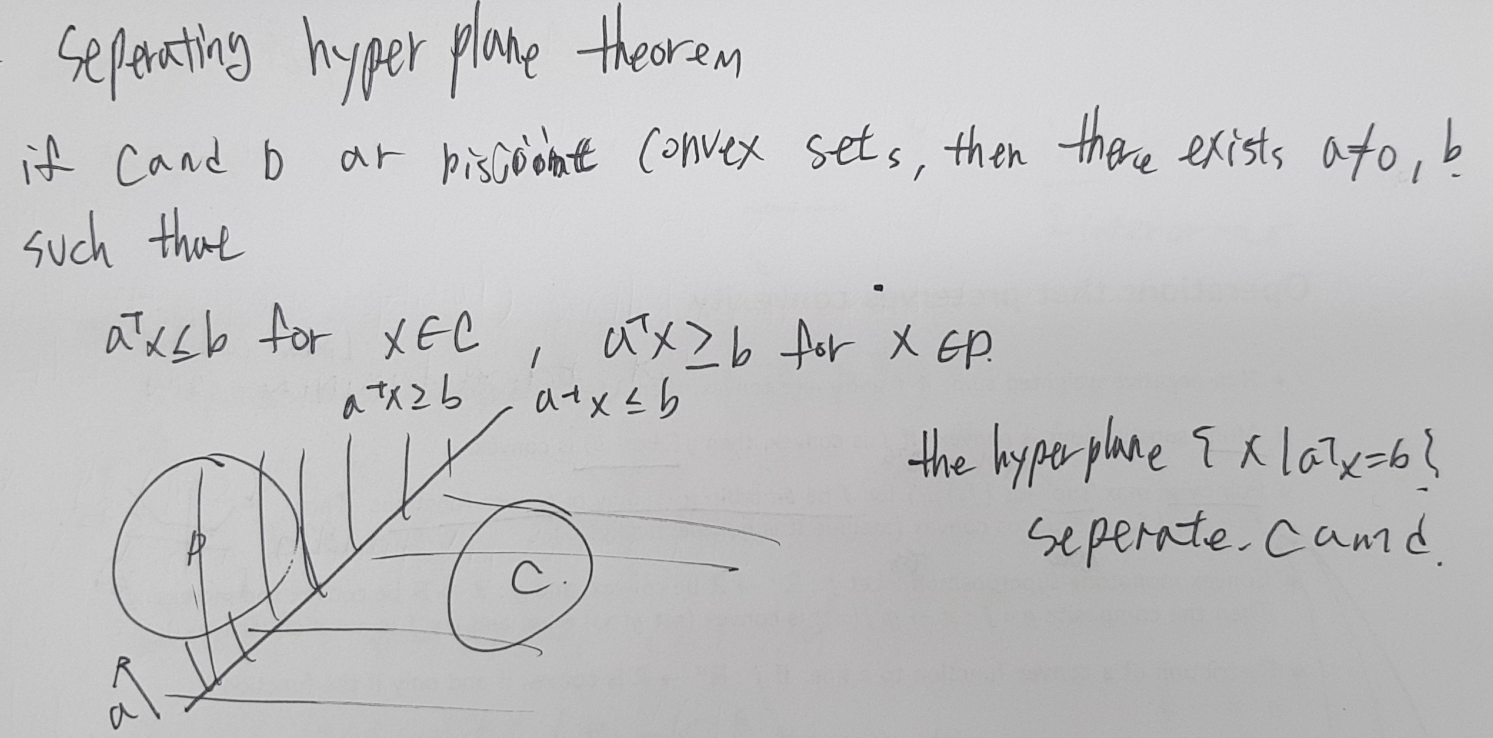 Seperating hyper plane theorem
if C and D ar Disjoint Convex sets, then there exists a≠0, b
such that
aᵀx≤b for x∈C , aᵀx≥b for x∈D.
aᵀx≥b aᵀx≤b
the hyperplane {x|aᵀx=b}
seperate. C and d.
D
C.
a